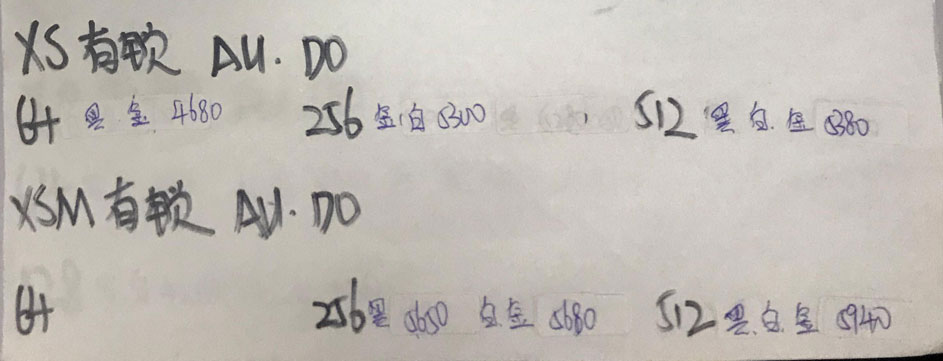 XS有锁 AU. DO
64 黑 金 4680 256 金 白 5300 512 黑 白 金 5380
XSM有锁 AU. DO
64 256 黑 5650 白 金 5680 512 黑.白.金 5940